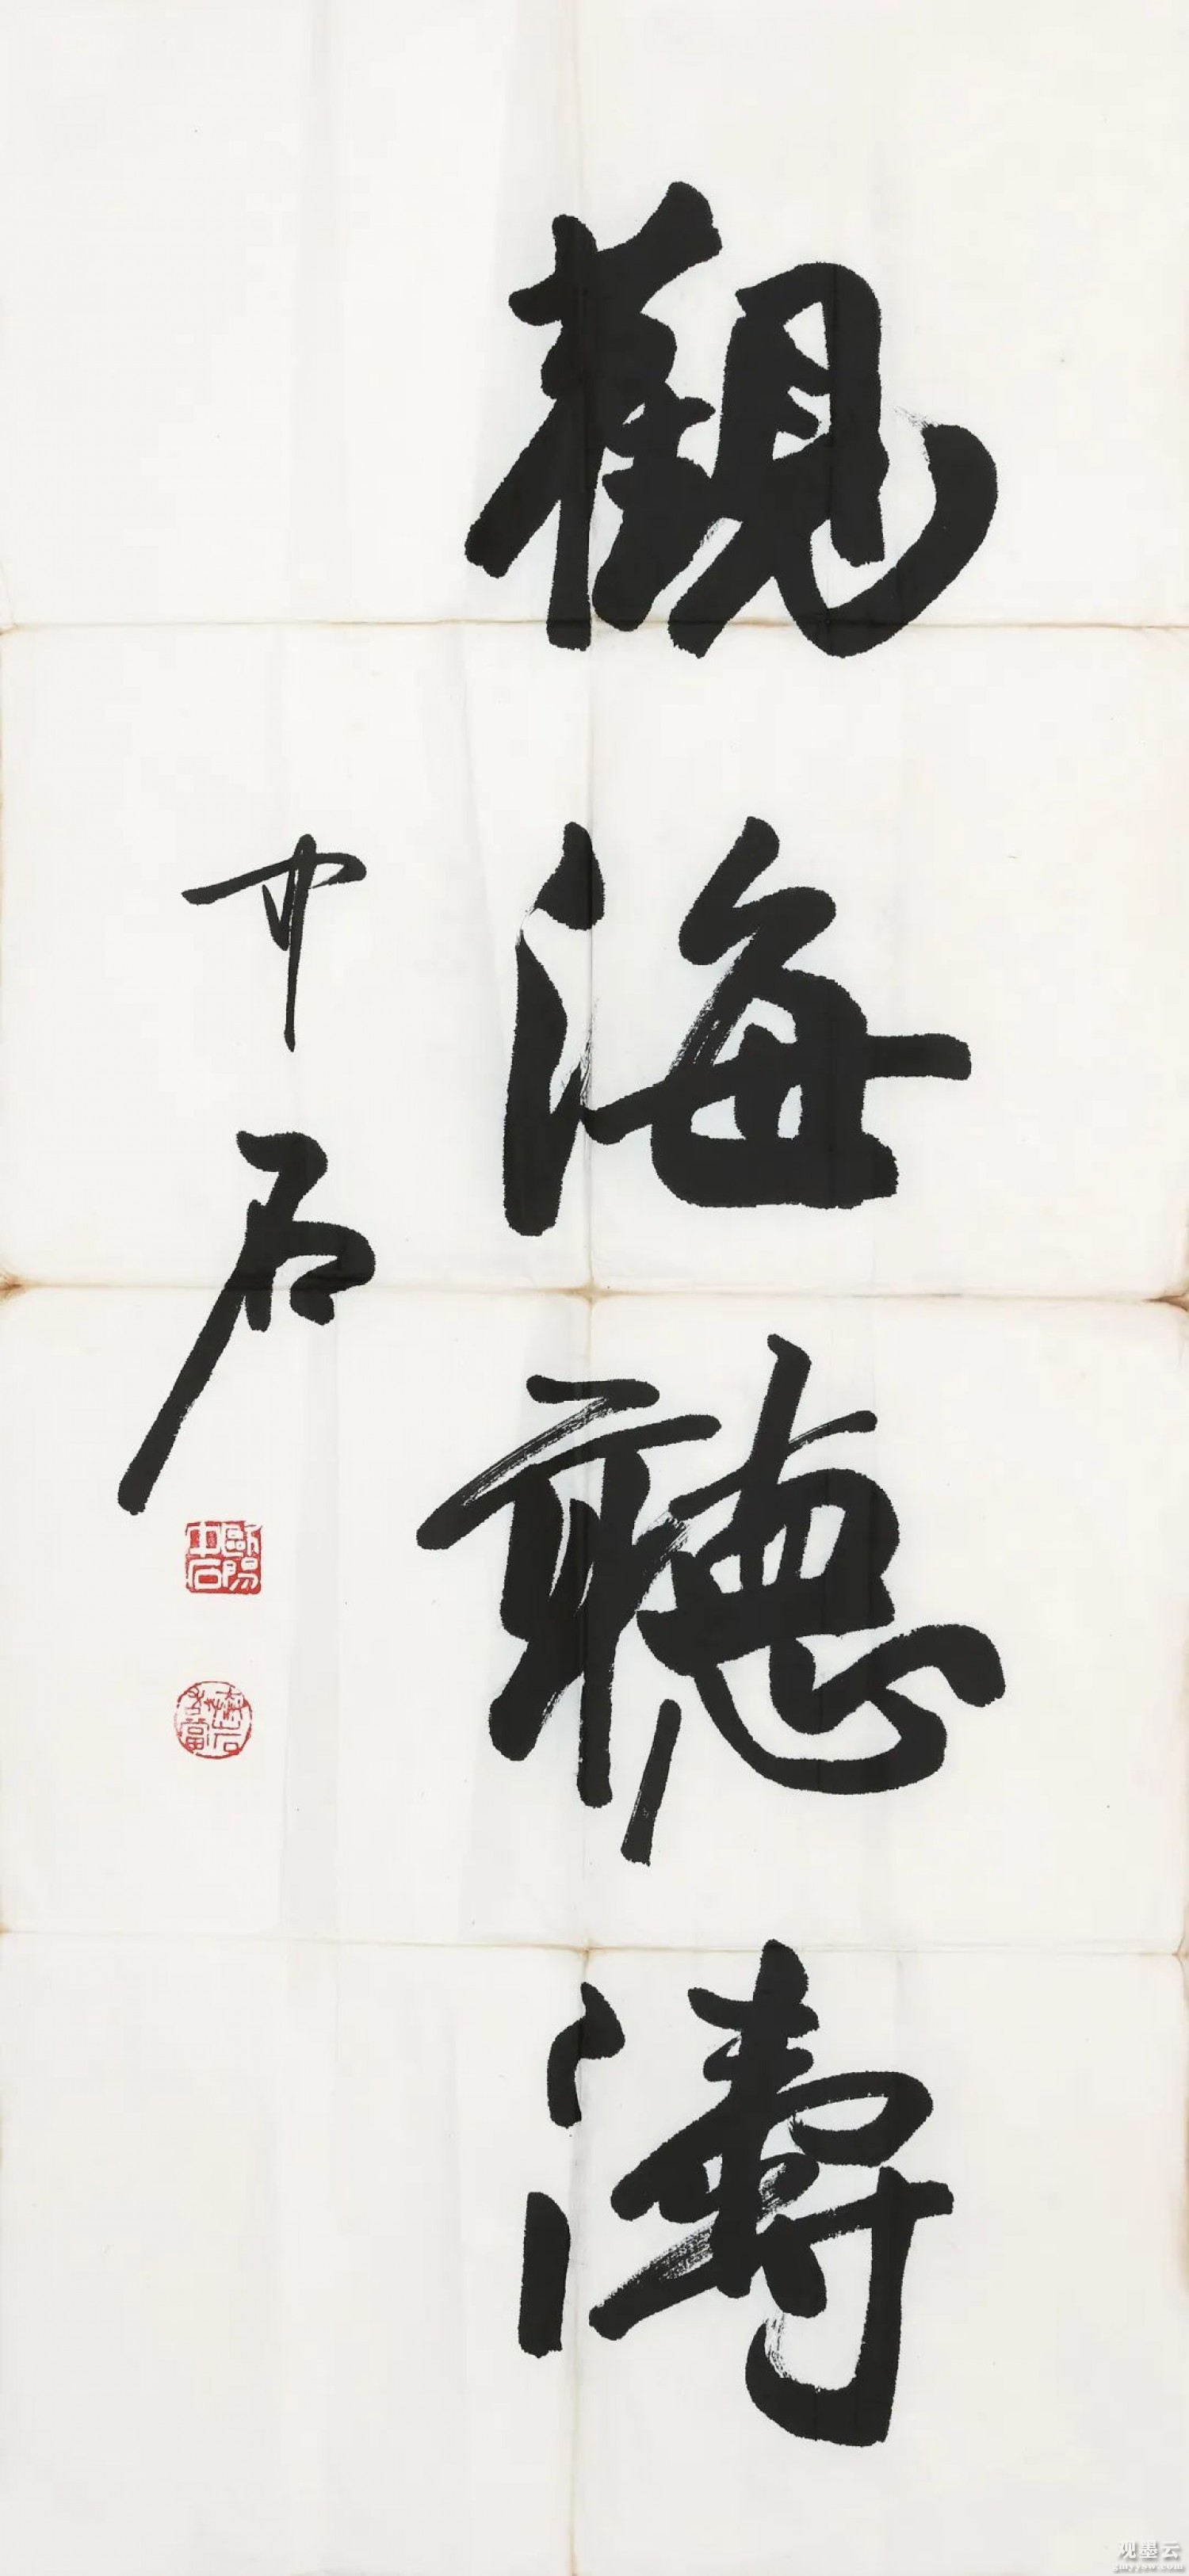 觀海聽濤
中石
歐陽中石
观墨云